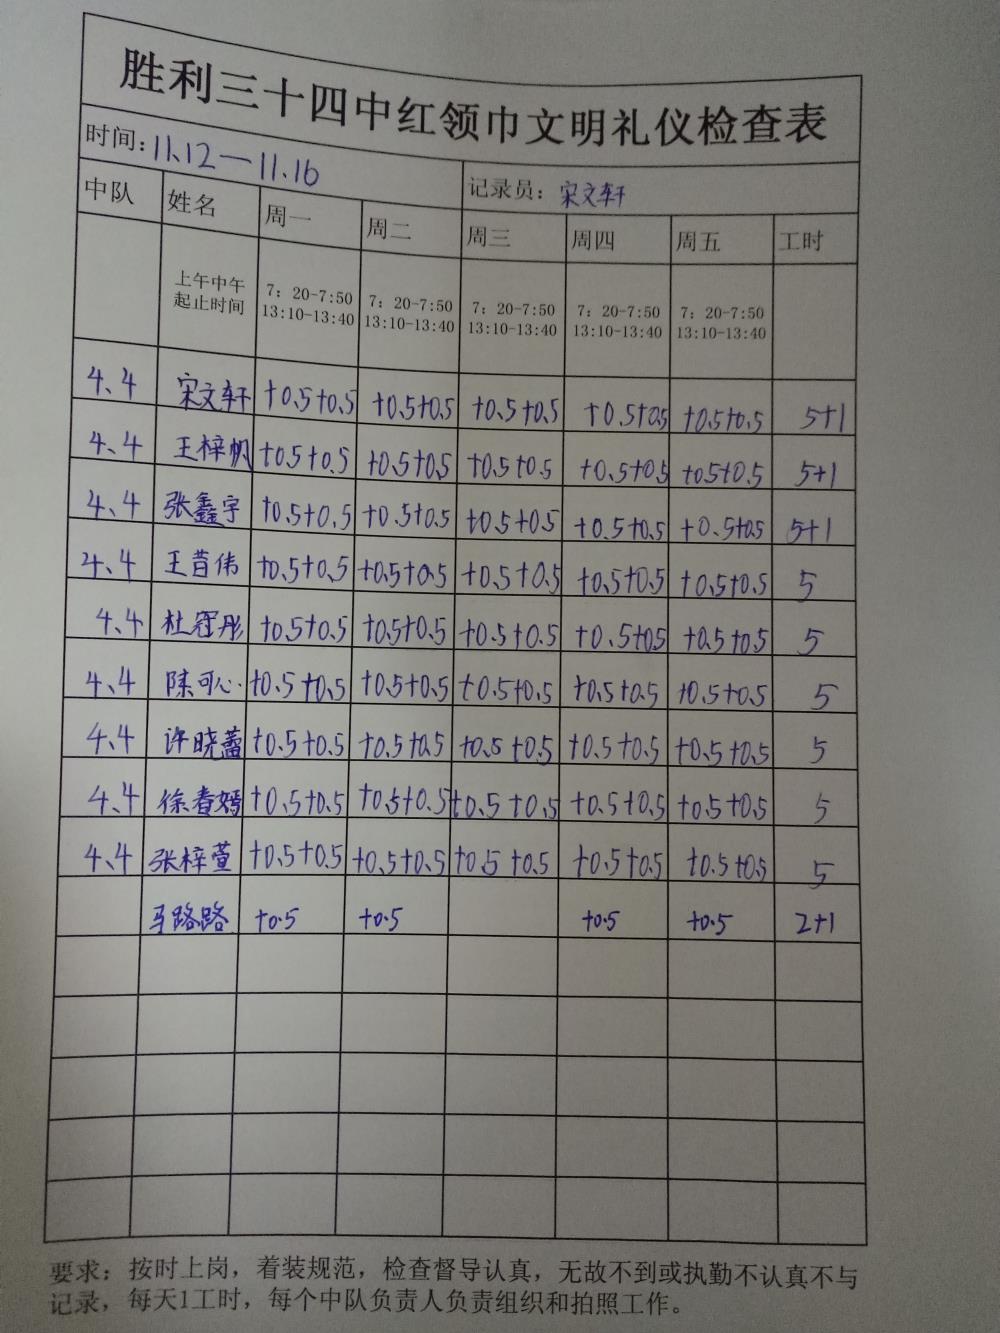 胜利三十四中红领巾文明礼仪检查表
时间: 11.12—11.16 记录员: 宋文轩
中队 姓名 周一 周二 周三 周四 周五 工时
上午中午 7: 20-7:50 7: 20-7:50 7: 20-7:50 7: 20-7:50 7: 20-7:50
起止时间 13:10-13:40 13:10-13:40 13:10-13:40 13:10-13:40 13:10-13:40
4、4 宋文轩 +0.5+0.5 +0.5+0.5 +0.5+0.5 +0.5+0.5 +0.5+0.5 5+1
4、4 王梓帆 +0.5+0.5 +0.5+0.5 +0.5+0.5 +0.5+0.5 +0.5+0.5 5+1
4、4 张鑫宇 +0.5+0.5 +0.5+0.5 +0.5+0.5 +0.5+0.5 +0.5+0.5 5+1
4、4 王昔伟 +0.5+0.5 +0.5+0.5 +0.5+0.5 +0.5+0.5 +0.5+0.5 5
4、4 杜冠彤 +0.5+0.5 +0.5+0.5 +0.5+0.5 +0.5+0.5 +0.5+0.5 5
4、4 陈可心 +0.5+0.5 +0.5+0.5 +0.5+0.5 +0.5+0.5 +0.5+0.5 5
4、4 许晓蕾 +0.5+0.5 +0.5+0.5 +0.5+0.5 +0.5+0.5 +0.5+0.5 5
4、4 徐春嫣 +0.5+0.5 +0.5+0.5 +0.5+0.5 +0.5+0.5 +0.5+0.5 5
4、4 张梓萱 +0.5+0.5 +0.5+0.5 +0.5+0.5 +0.5+0.5 +0.5+0.5 5
马路路 +0.5 +0.5 +0.5 +0.5 2+1
要求: 按时上岗，着装规范，检查督导认真，无故不到或执勤不认真不与
记录，每天1工时，每个中队负责人负责组织和拍照工作。